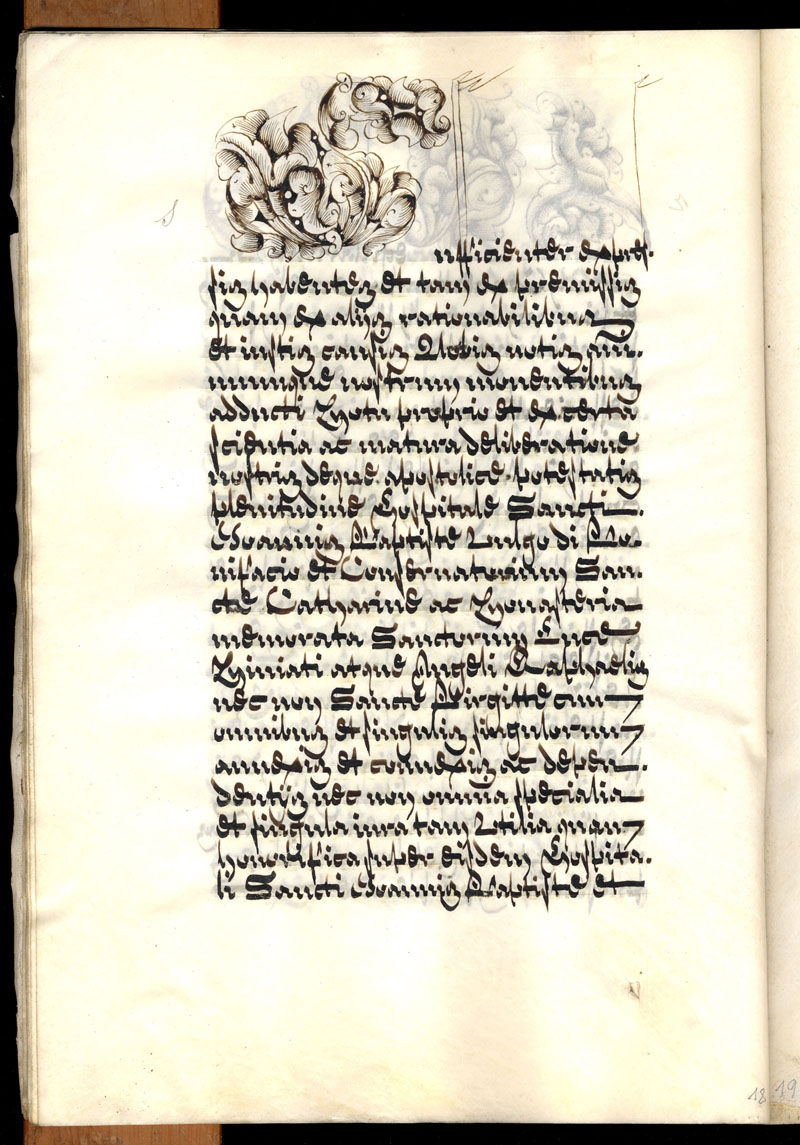 S
Sufficienter expres-
sis habentes et tam ex premissis
quam ex alijs rationabilibus
et iustis causis Nobis notis ani-
mumque nostrum mouentibus
adducti Motu proprio et ex certa
scientia ac matura deliberatione
nostris deque apostolice potestatis
plenitudine Hospitale Sancti
Joannis Baptiste Vulgo di Bo-
nifacio et Conseruatorium San-
cte Catharine ac Monasteria
memorata Sanctorum Luce
Miniati atque Angeli Raphaelis
nec non Sancte Birgitte cum
omnibus et singulis singulorum
annexis et connexis ac depen-
dentijs nec non omnia specialia
et singula iura tam Vtilia quam
honorifica super eisdem Hospita-
li Sancti Joannis Baptiste et
18 19